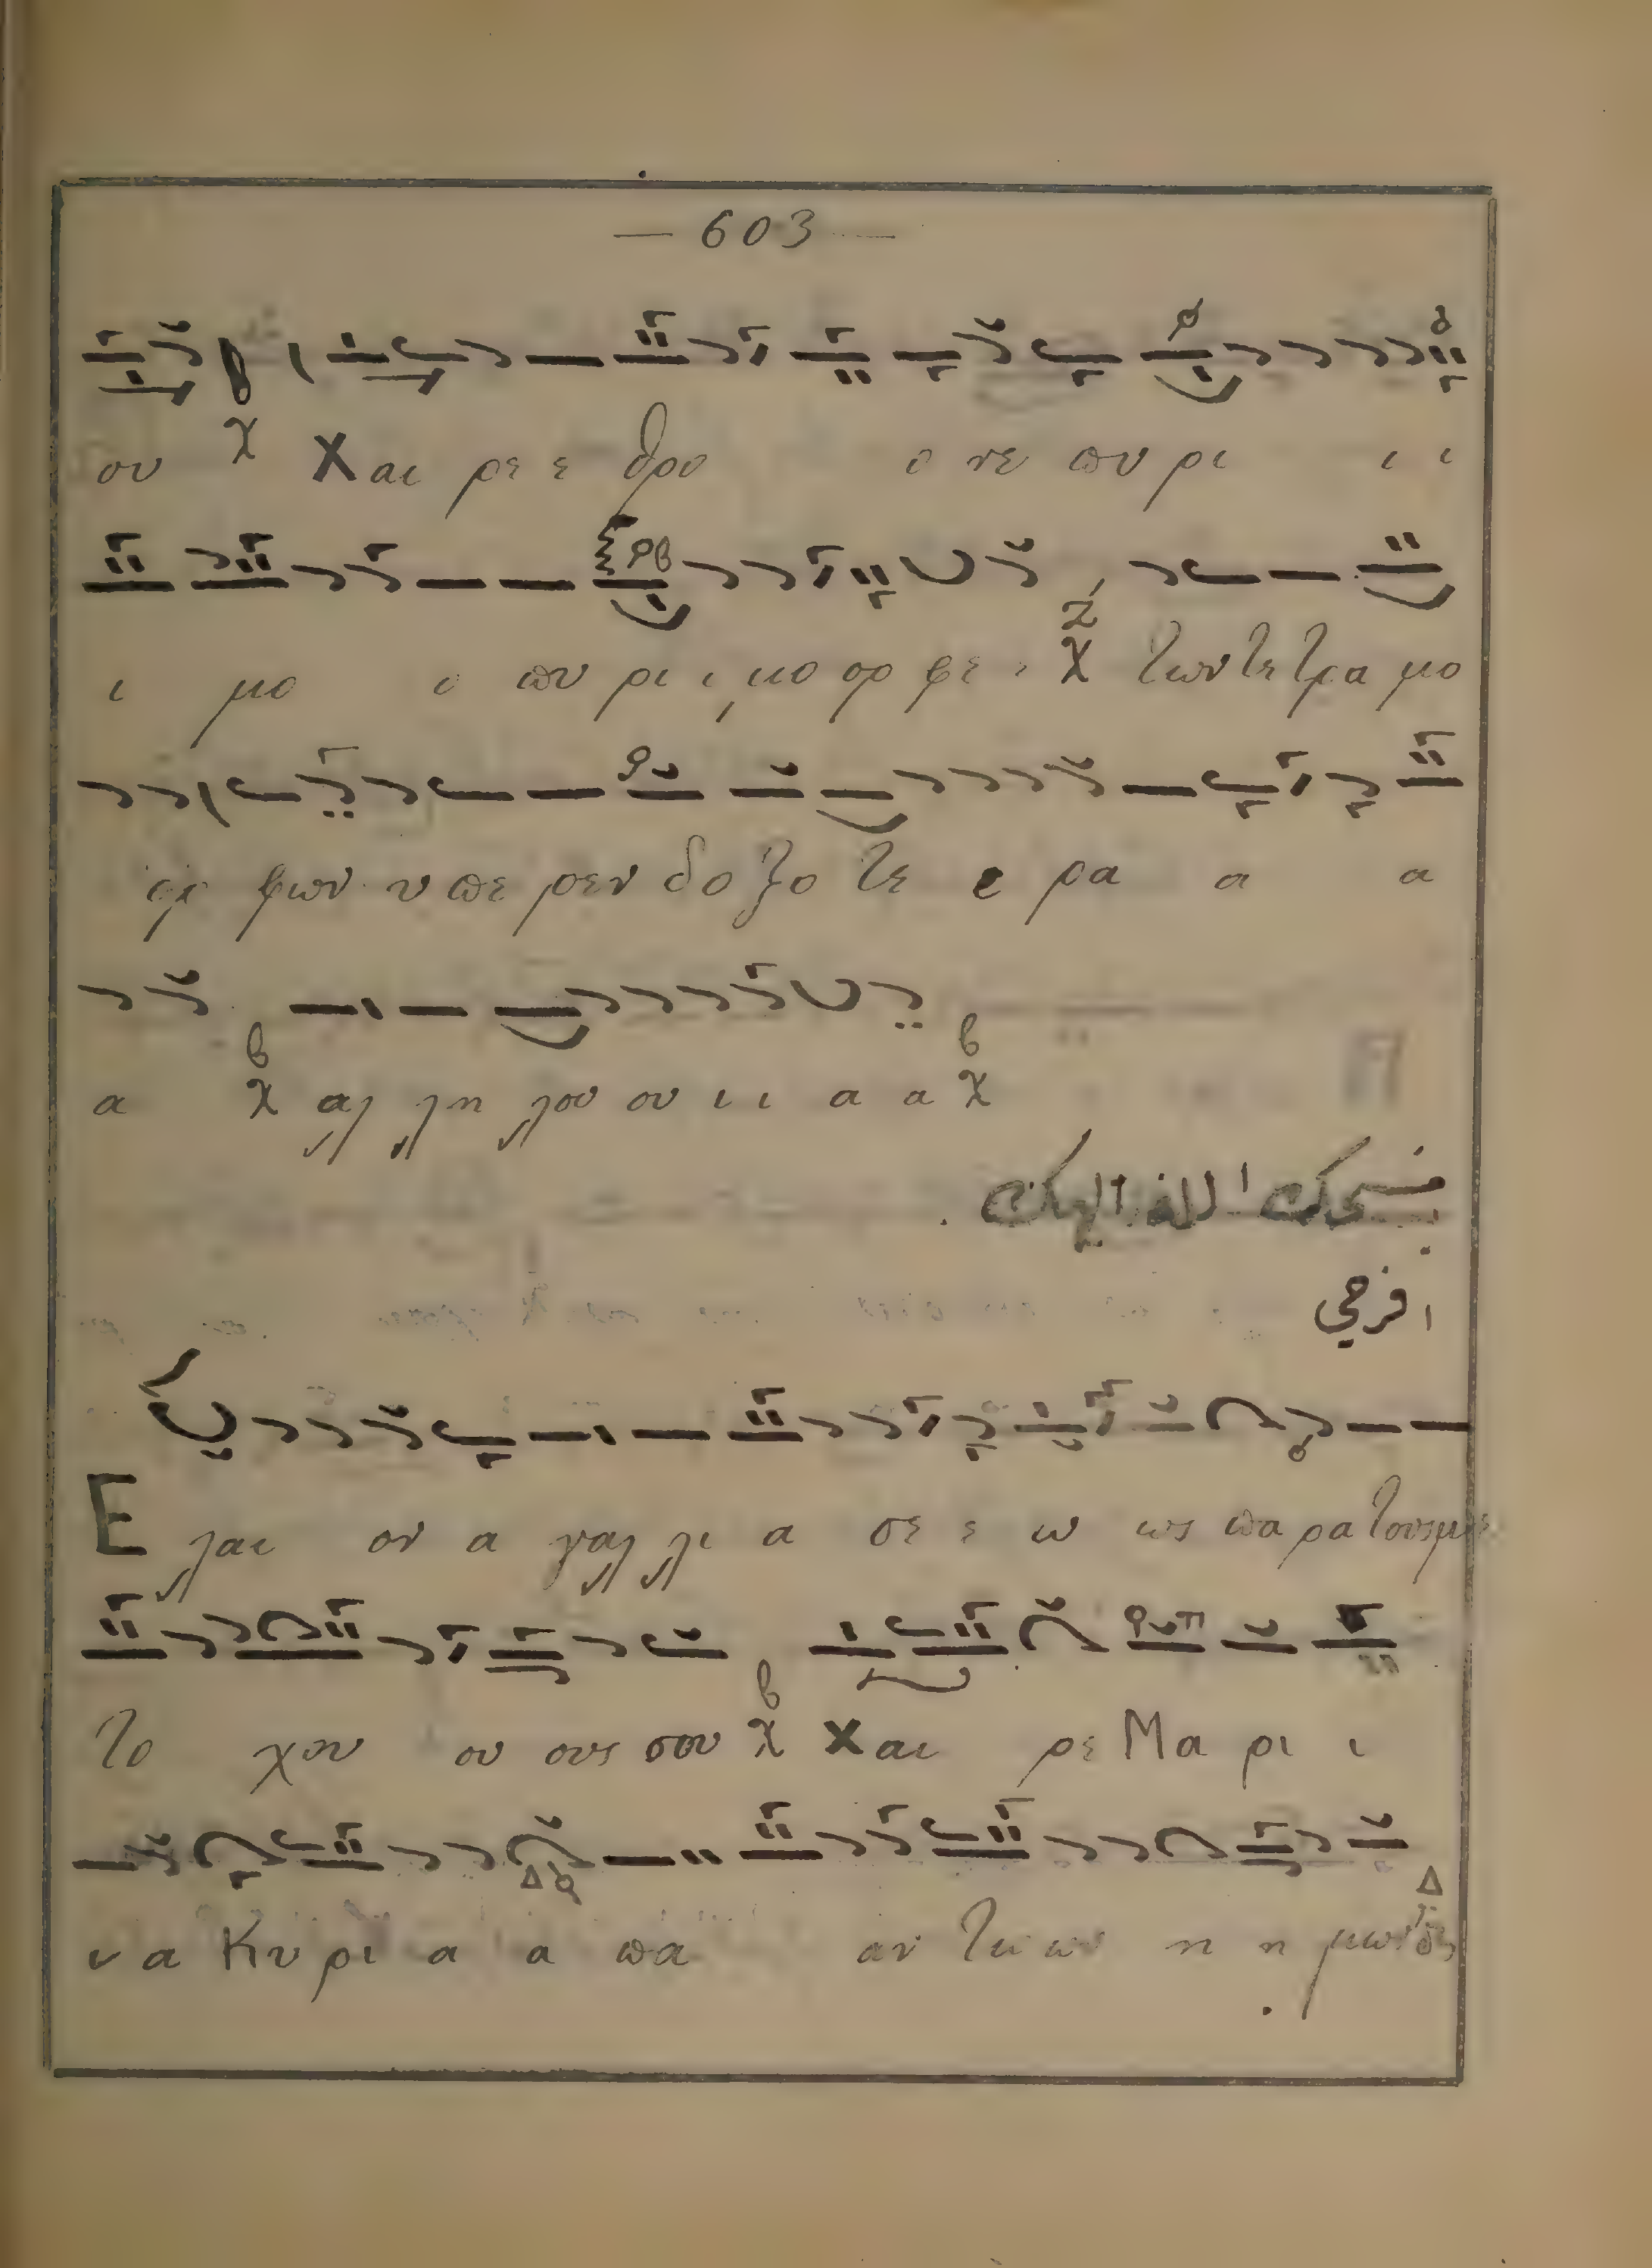 — 603 —
ου χ Χαι ρε ε θρο ο νε πυ ρι ι ι
ι μο ο πυ ρι ι μο ορ φε ε χ των τε τρα μο
ορ φων υ πε ρεν δο ξο τε ε ρα α α
α χ αλ λη λου ου ι ι α α χ
مسحك الله الهك .
افرحي
Ε λαι ον α γαλ λι α σε ε ω ως πα ρα τους με
το χου ου ους σου χ Χαι ρε Μα ρι ι
ι α Κυ ρι α α πα αν τω ων η η μων